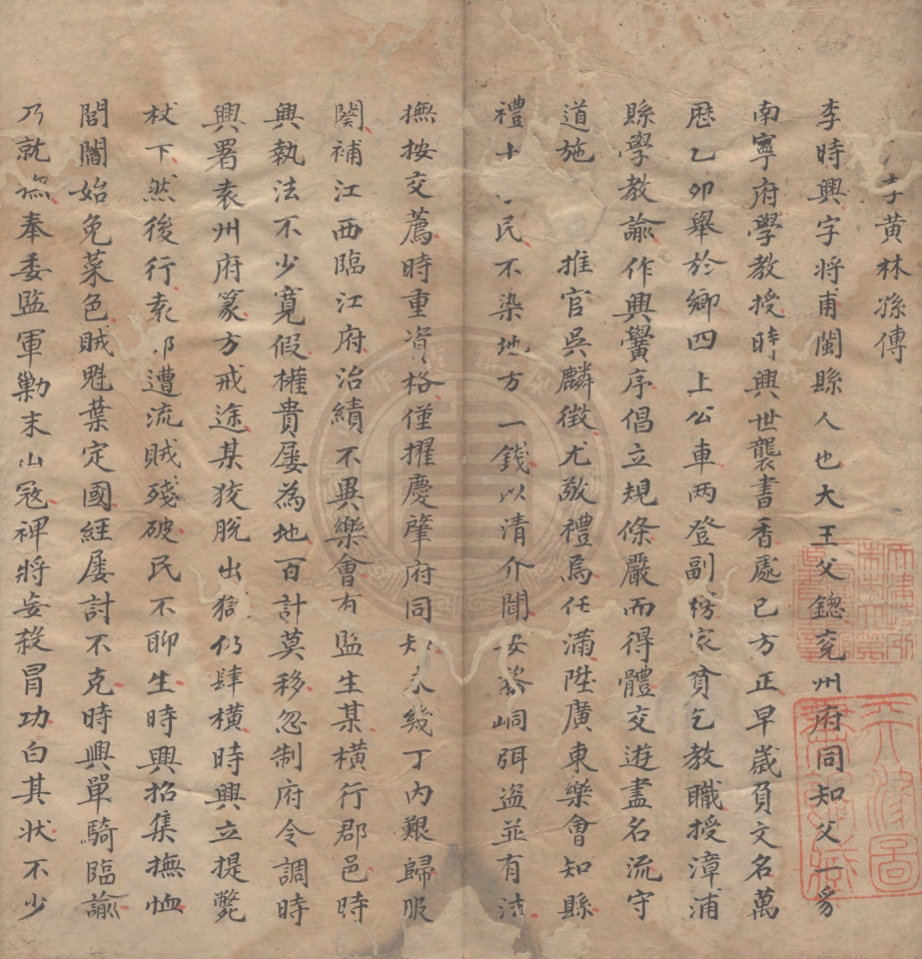 李黄林孫傳
李時興字将甫閩縣人也大王父鏓兖州府同知父一
南寧府學教授時興世襲書香處已方正早歲負文名萬
歷乙卯舉於鄉四上公車两登副榜家貧乞教職授漳浦
縣學教諭作興黌序倡立規條嚴而得體交遊盡名流守
道施 推官吳麟徴尤敬禮焉任滿陞廣東樂會知縣
禮士 民不染地方一錢以清介聞安黎峒弭盗並有法
撫按交薦時重資格僅擢慶肇府同知未幾丁内艱歸服
闋補江西臨江府治績不異樂會有監生某横行郡邑時
興執法不少寛假權貴屡為地百計莫移忽制府令調時
興署袁州府篆方戒途某狡脱出獄仍肆横時興立提斃
杖下然後行袁郡遭流賊殘破民不聊生時興招集撫恤
閭閻始免菜色賊魁葉定國經屡討不克時興單騎臨諭
乃就撫奉委監軍勦末山冦禆將妄殺冐功白其状不少